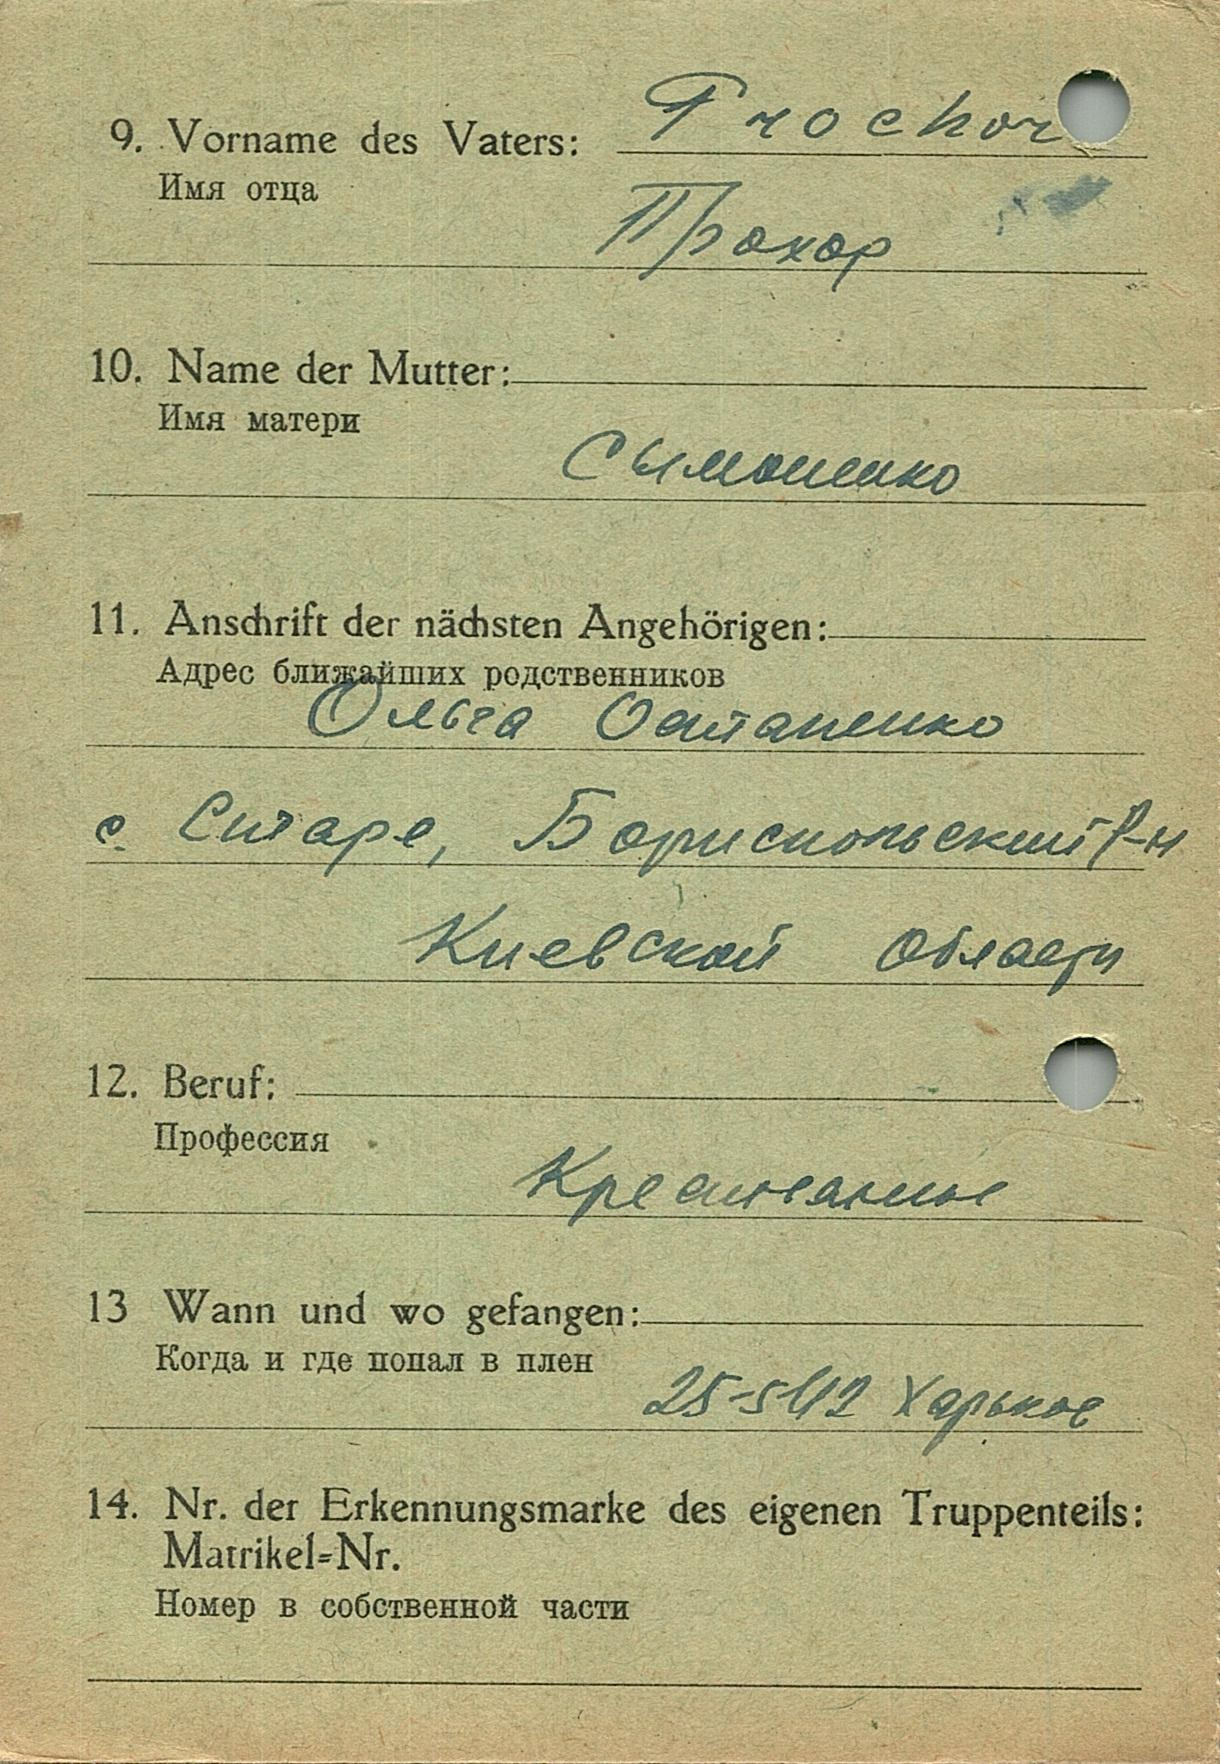 9. Vorname des Vaters: Prochor
Имя отца
Прохор
10. Name der Mutter:
Имя матери
Сымоненко
11. Anschrift der nächsten Angehörigen:
Адрес ближайших родственников
Ольга Остапенко
с. Старе, Бориспольский р-н
Киевской области
12. Beruf:
Профессия
13 Wann und wo gefangen:
Когда и где попал в плен
25-5 42 Харьков
14. Nr. der Erkennungsmarke des eigenen Truppenteils:
Matrikel=Nr.
Номер в собственной части